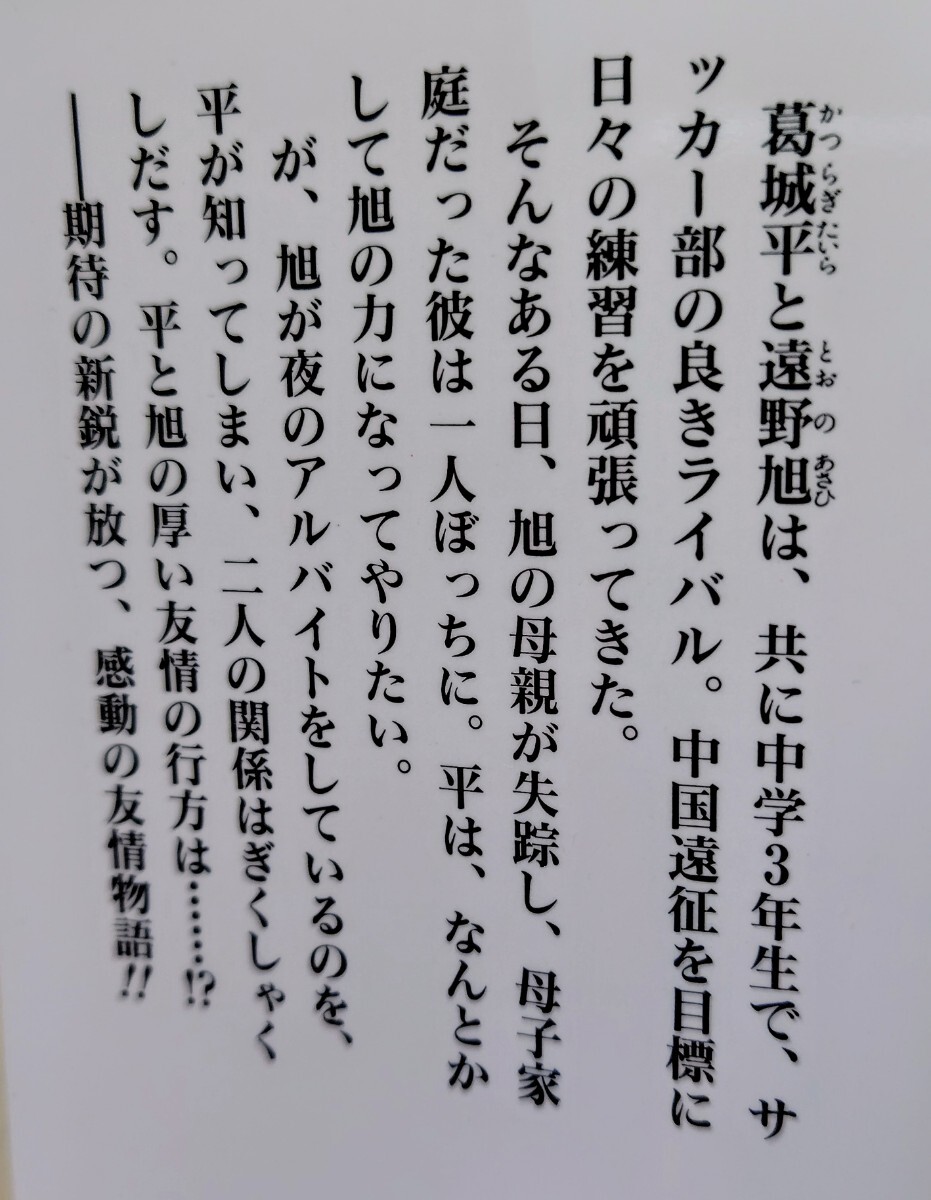 葛城平と遠野旭は、共に中学3年生で、サ
かつらぎたいら とおのあさひ
ッカー部の良きライバル。中国遠征を目標に
日々の練習を頑張ってきた。
そんなある日、旭の母親が失踪し、母子家
庭だった彼は一人ぼっちに。平は、なんとか
して旭の力になってやりたい。
が、旭が夜のアルバイトをしているのを、
平が知ってしまい、二人の関係はぎくしゃく
しだす。平と旭の厚い友情の行方は……!?
――期待の新鋭が放つ、感動の友情物語!!